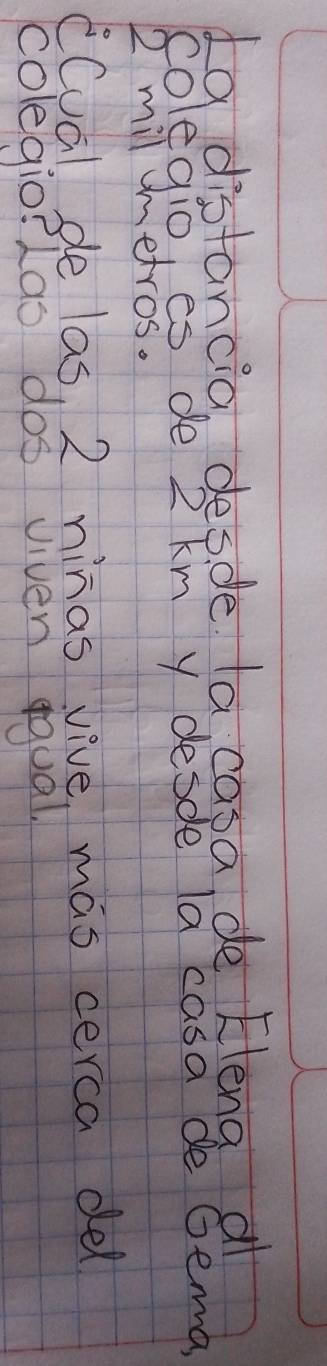 La distancia desde la casa de Elena al
colegio es de 2 km y desde la casa de Gema,
2 mil metros.
¿Cuál de las 2 niñas vive más cerca del
colegio? Las dos viven igual.